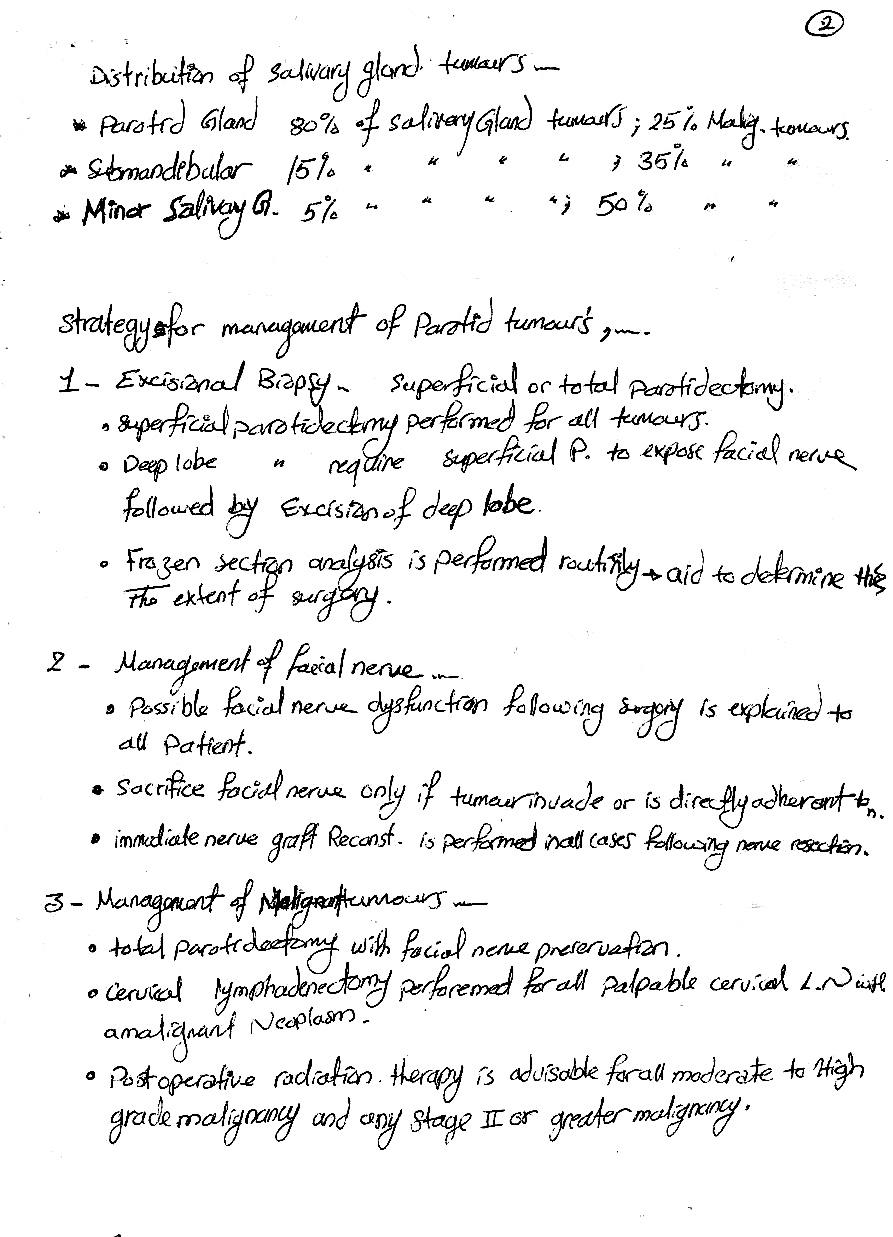 2
Distribution of salivary gland tumours
* Parotid Gland 80% of salivery Gland tumours ; 25% Malig. tumours.
* Submandebular 15% " " " " ; 35% " "
* Minor Salivay G. 5% " " " " ; 50% " "
strategy for managament of Parotid tumours,
1 - Excisional Biopsy - superficial or total parotidectomy.
• superficial parotidectomy performed for all tumours.
• Deep lobe " require superficial P. to expose facial nerve
followed by Excision of deep lobe.
• Frozen section analysis is performed routinly → aid to determine the
The extent of surgary.
2 - Management of facial nerve
• Possible facial nerve dysfunction following surgory is explained to
all Patient.
• Sacrifice facial nerve only if tumour invade or is directly adherent to n.
• immediate nerve graft Reconst. is performed in all cases following nerve resection.
3 - Managament of Malignant tumours
• total parotidectomy with facial nerve preservation.
• Cervical lymphadenectomy perforemed for all palpable cervical L.N with
a malignant Neoplasm.
• Postoperative radiation. therapy is advisable for all moderate to High
grade malignancy and any stage II or greater malignancy.